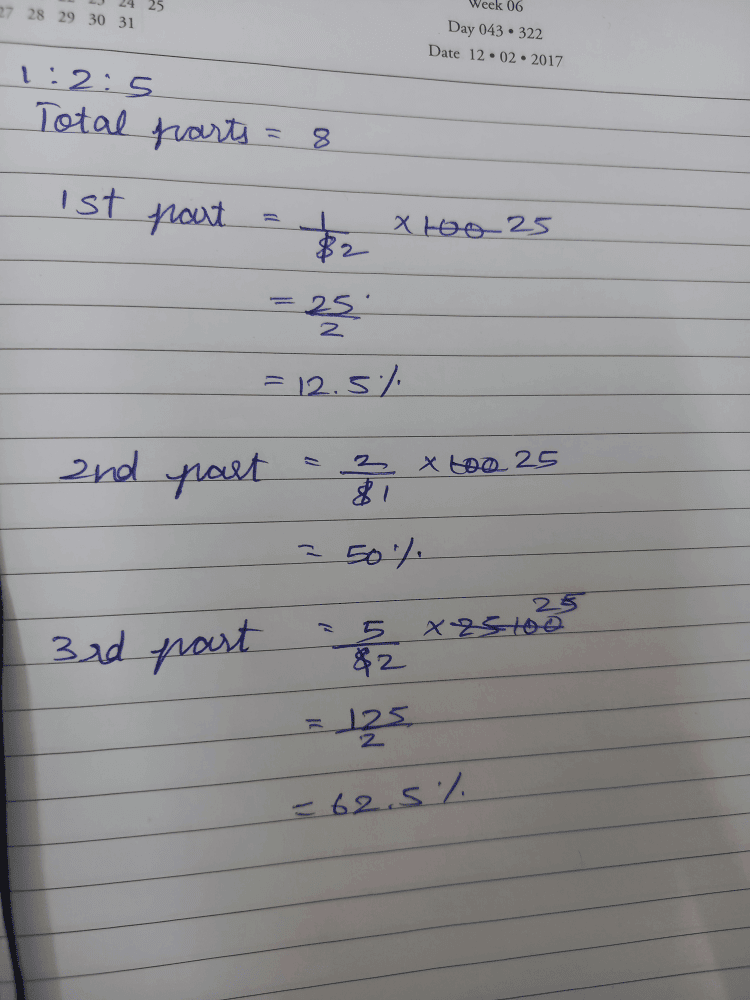 24 25
27 28 29 30 31
Week 06
Day 043 • 322
Date 12 • 02 • 2017
1 : 2 : 5
Total parts = 8
1st part = 1/8 2 × 100 25
= 25/2
= 12.5%
2nd part = 2/8 1 × 100 25
= 50%
3rd part = 5/8 2 × 25 100 25
= 125/2
= 62.5%